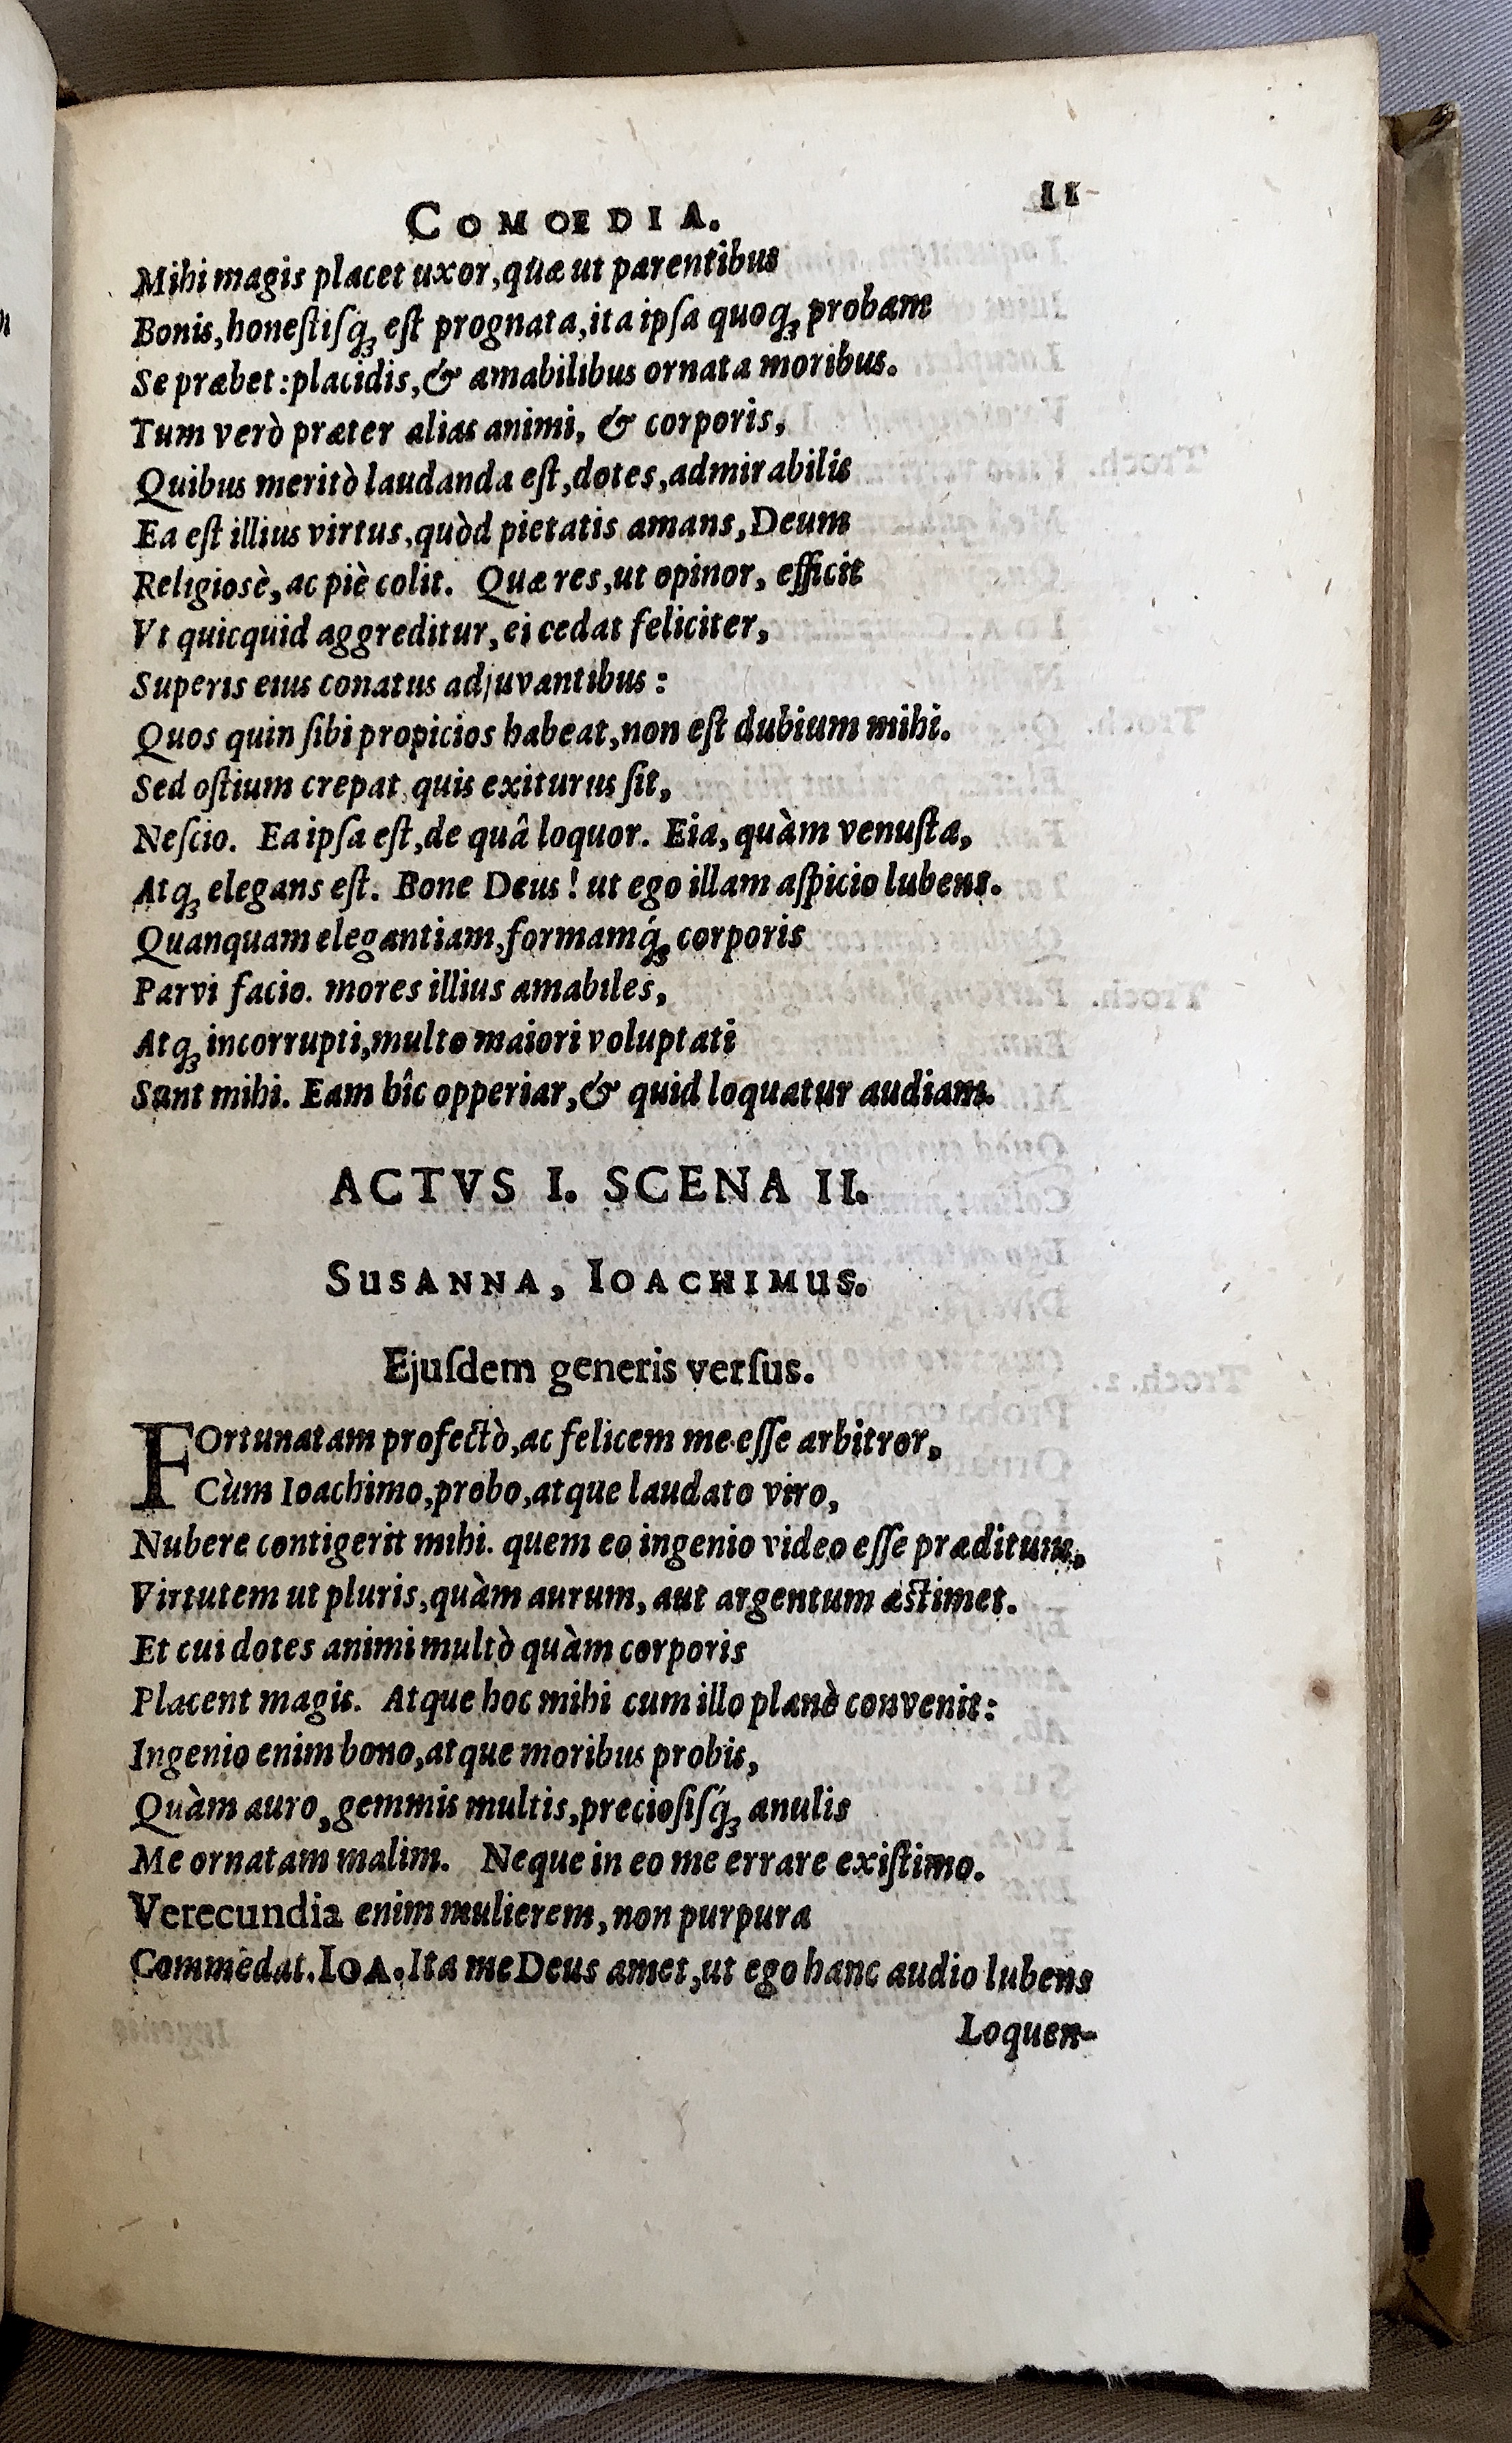 COMŒDIA. 11
Mihi magis placet uxor, quæ ut parentibus
Bonis, honeſtiſq́ꝫ eſt prognata, ita ipſa quoqꝫ probam
Se præbet: placidis, & amabilibus ornata moribus.
Tum verò præter alias animi, & corporis,
Quibus meritò laudanda eſt, dotes, admirabilis
Ea eſt illius virtus, quòd pietatis amans, Deum
Religiosè, ac piè colit. Quæ res, ut opinor, efficit
Vt quicquid aggreditur, ei cedat feliciter,
Superis eius conatus adjuvantibus:
Quos quin ſibi propicios habeat, non eſt dubium mihi.
Sed oſtium crepat, quis exiturus ſit,
Neſcio. Ea ipſa eſt, de quâ loquor. Eia, quàm venuſta,
Atqꝫ elegans eſt. Bone Deus! ut ego illam aſpicio lubens.
Quanquam elegantiam, formamq́ꝫ corporis
Parvi facio. mores illius amabiles,
Atqꝫ incorrupti, multo maiori voluptati
Sunt mihi. Eam hîc opperiar, & quid loquatur audiam.
ACTVS I. SCENA II.
SUSANNA, IOACHIMUS.
Ejuſdem generis verſus.
FOrtunatam profectò, ac felicem me eſſe arbitror,
Cùm Ioachimo, probo, atque laudato viro,
Nubere contigerit mihi. quem eo ingenio video eſſe præditum,
Virtutem ut pluris, quàm aurum, aut argentum æſtimet.
Et cui dotes animi multò quàm corporis
Placent magis. Atque hoc mihi cum illo planè convenit:
Ingenio enim bono, atque moribus probis,
Quàm auro, gemmis multis, precioſiſq́ꝫ anulis
Me ornatam malim. Neque in eo me errare exiſtimo.
Verecundia enim mulierem, non purpura
Commēdat. IOA. Ita me Deus amet, ut ego hanc audio lubens
Loquen-